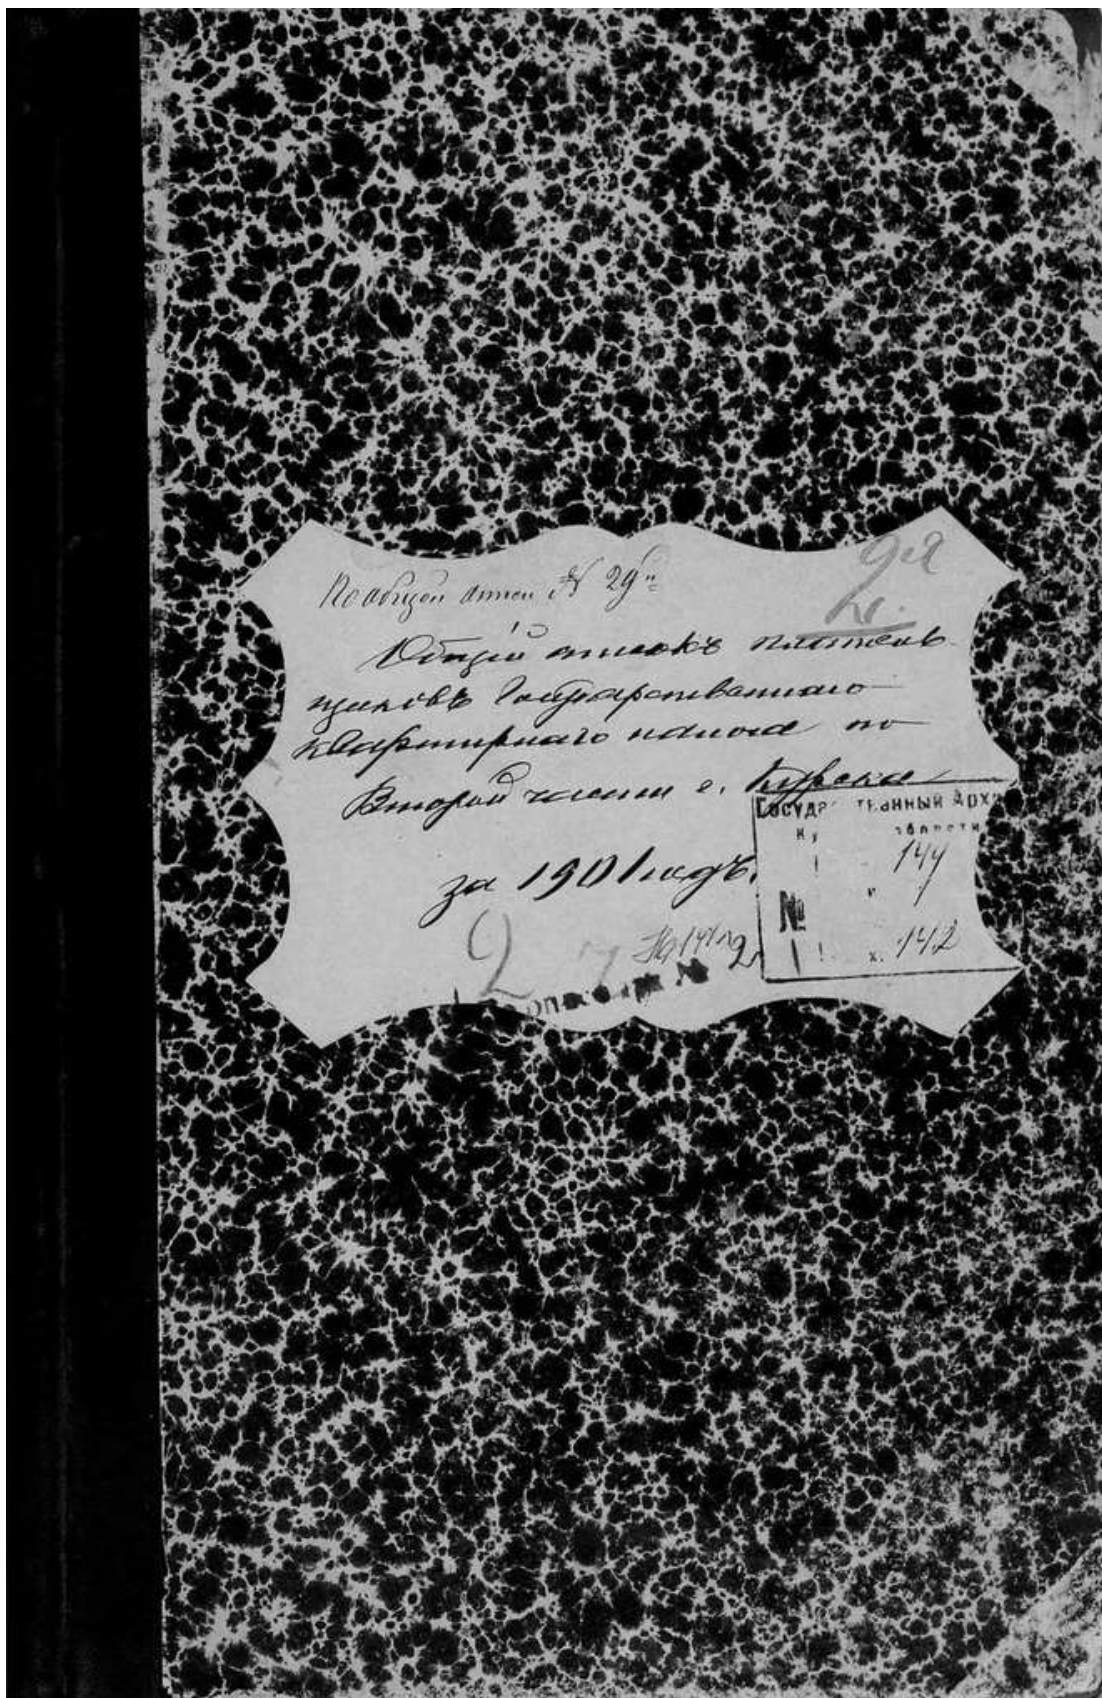 По общей описи № 29й
2.
Общій списокъ платель-
щиковъ Государственнаго
квартирнаго налога по
Второй части г. Курска
за 1901 годъ.
Государственный Архи
области
144
№
х. 142
2